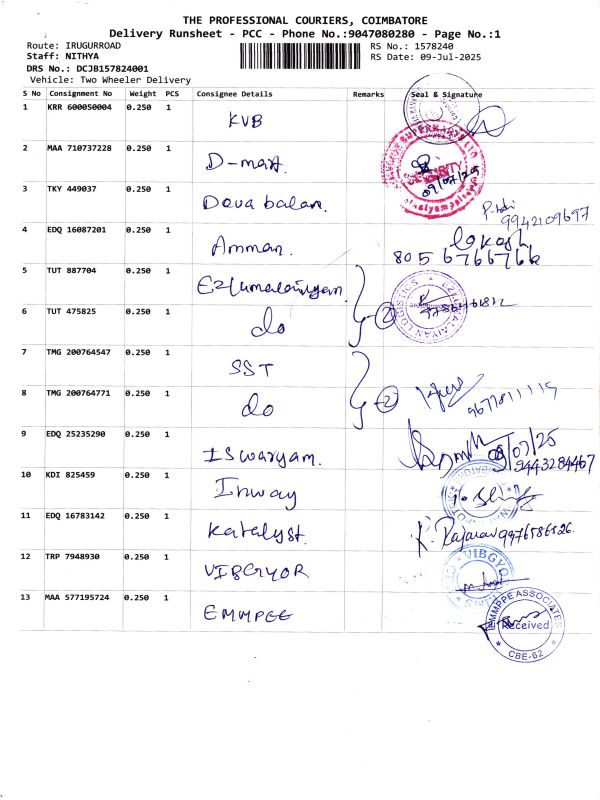 THE PROFESSIONAL COURIERS, COIMBATORE
Delivery Runsheet - PCC - Phone No.:9047080280 - Page No.:1
Route: IRUGURROAD
Staff: NITHYA
DRS No.: DCJB157824001
Vehicle: Two Wheeler Delivery
RS No.: 1578240
RS Date: 09-Jul-2025
S No Consignment No Weight PCS Consignee Details Remarks Seal & Signature
1 KRR 600050004 0.250 1 KVB
2 MAA 710737228 0.250 1 D-mart.
SECURITY
09/07/25
3 TKY 449037 0.250 1 Devabalan.
9942109697
4 EDQ 16087201 0.250 1 Amman.
5 TUT 887704 0.250 1
6 TUT 475825 0.250 1 do 2
LOGISTICS
7 TMG 200764547 0.250 1 SST
8 TMG 200764771 0.250 1 do 2
9 EDQ 25235290 0.250 1 ISwaryam.
09/07/25
9443284467
10 KDI 825459 0.250 1 Inway
11 EDQ 16783142 0.250 1 Katalyst.
K. Rajaran 9976586526
12 TRP 7948930 0.250 1 VIBGYOR
VIBGYOR
13 MAA 577195724 0.250 1 EMMPEE
EMMPPE ASSOCIATES
Received
CBE-62